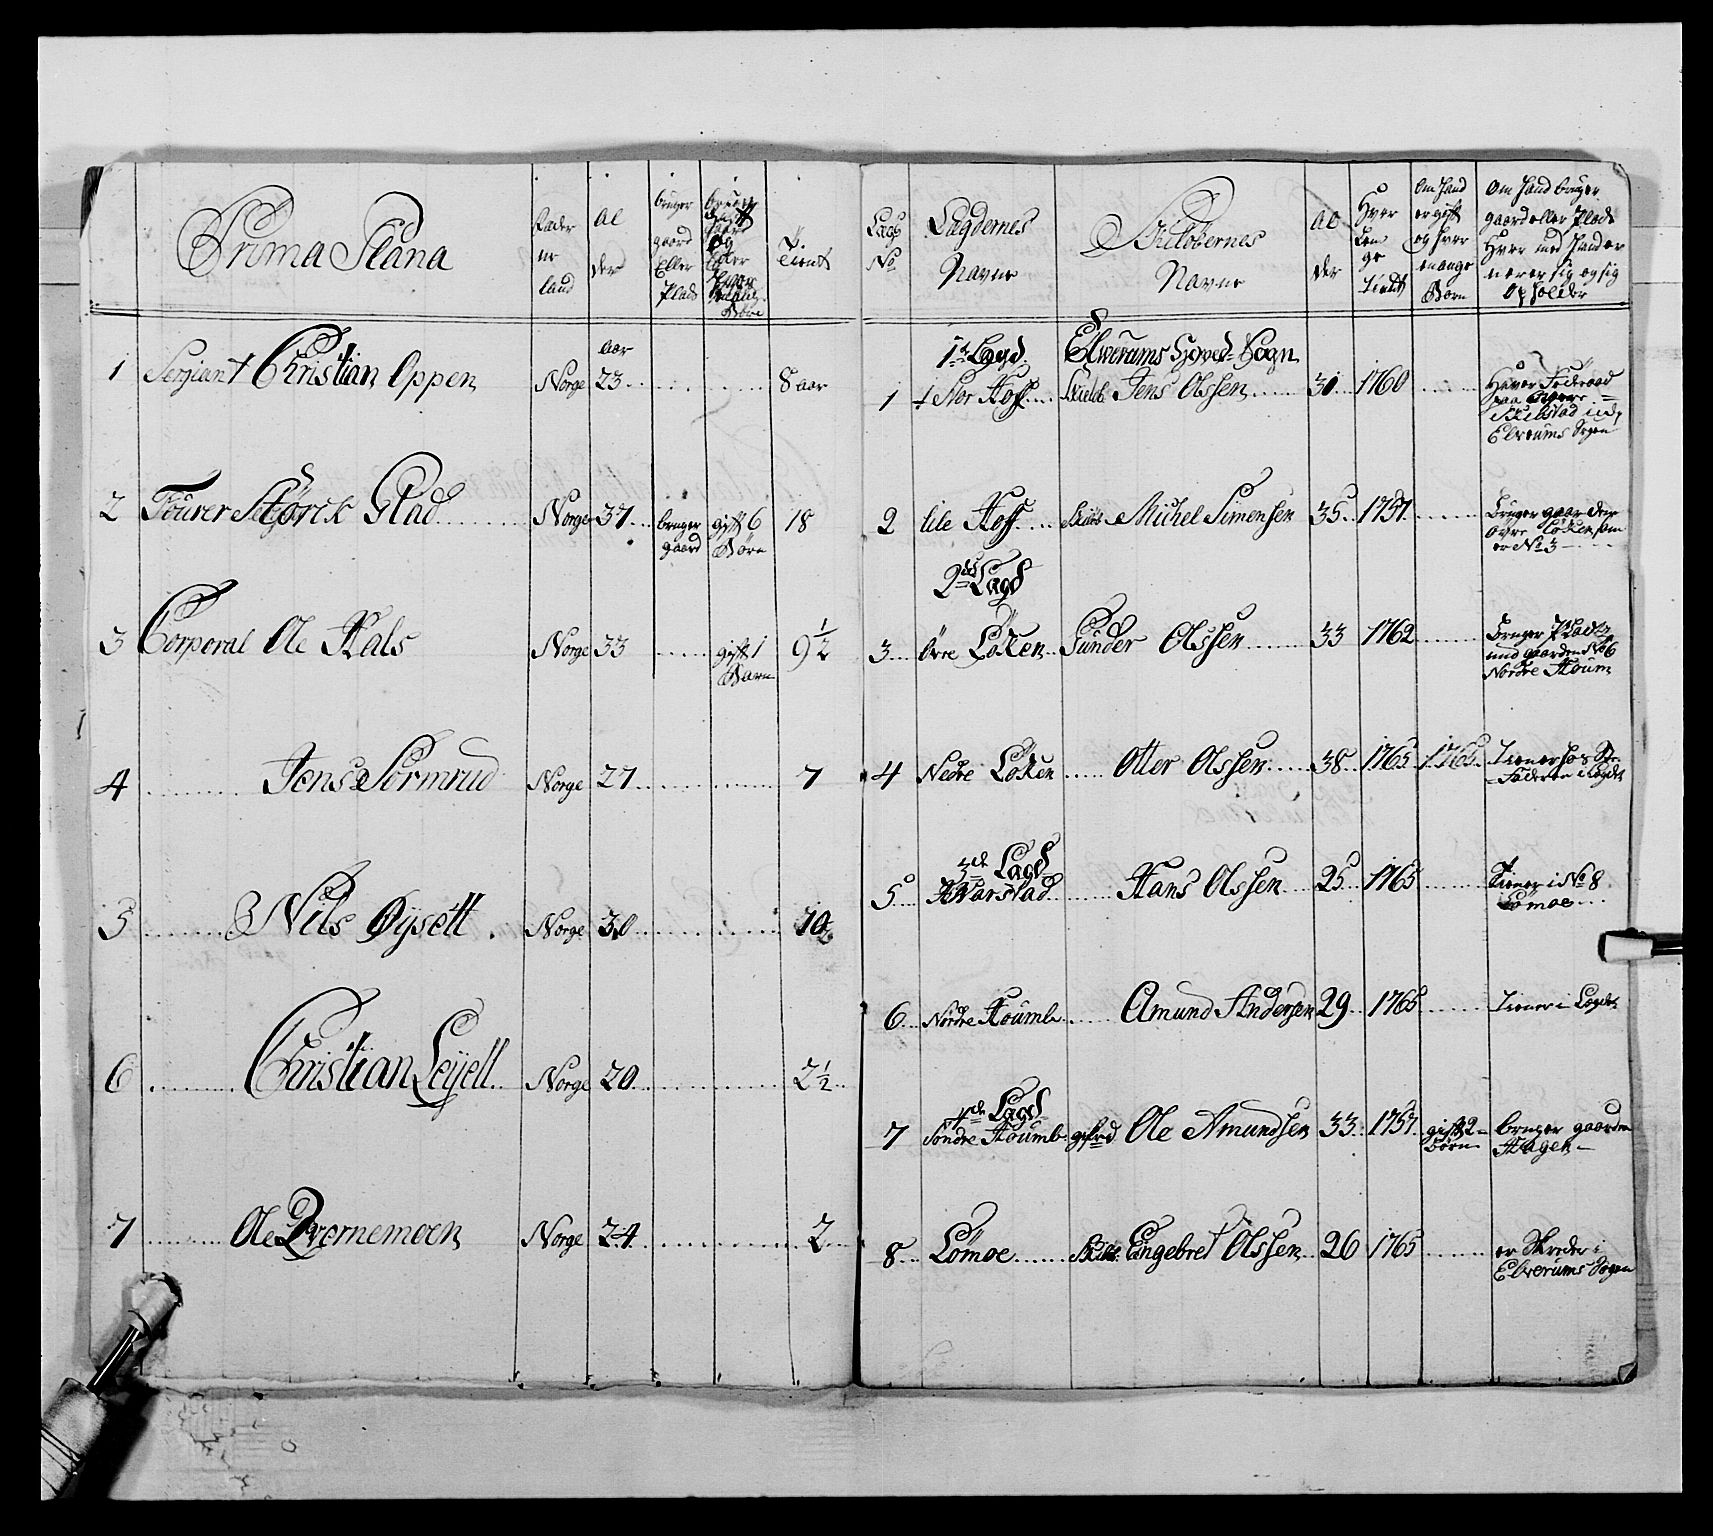 Prima Plana
Fader
ne
land
Al
der
bruger
gaard
Eller
Plads
tient
1 Sergiant Christian Oppen Norge
aar
23 8 aar
2 Fourer Størck Glad Norge 37 bruger
gaard
gift 6
Børn
18
3 Corporal Ole Hals Norge 33 gift 1
Barn
9½
4 Jens Sormrud Norge 27 7
5 Nils Øysett Norge 30 10
6 Christian Leyell Norge 20 2½
7 Ole Qvernemoen Norge 24 2
Lægs
No
Lægdernes
Navne
Skiløbernes
Navne
Al
der
Hvor
Len
ge
tient
Om hand
er gift
og hvor
mange
Børn
Om hand bruger
gaard eller Plads
Hvor med hand er
nerer sig og sig
opholder
1st Lægd Elverums Hoved-Sogn
1 Stor Hoff Jens Olssen 31 1760 Haver Føderaad
paa
Skibstad
Elverums Sogen
2 lile Hoff Michel Simensen 35 1757 bruger gaarden
øvre Løken som
er No 3
2d Lægd
3 øvre Løken Gunder Olssen 33 1762 bruger Plads
und gaarden No 6
Nordre Houm
4 Nedre Løken Otter Olssen 38 1765 1765 Tiener hos
Faderen i Legdet
3de Lægd
5 Harstad Hans Olssen 25 1765 Tiener i No 8
Lømoe
6 Nordre Houmb Amund Andersen 29 1765 Tiener i Legdet
4de Lægd
7 Søndre Houmb gefrd Ole Amundsen 33 1757 gift 2
børn
bruger gaarden
Hagen
8 Lømoe Engebret Olssen 26 1765 er Skreder i
Elverums Sogen